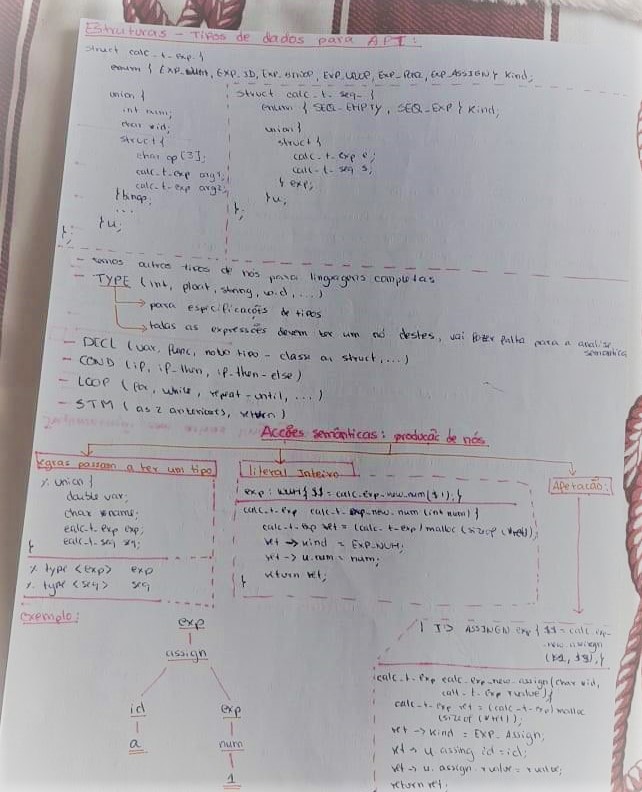 Estruturas - Tipos de dados para APT:
struct calc_t_exp {
enum { EXP_NUM, EXP_ID, EXP_BINOP, EXP_UNOP, EXP_PAR, EXP_ASSIGN } kind;
union {
int num;
char *id;
struct {
char op[3];
calc_t_exp arg1;
calc_t_exp arg2;
} binop;
...
} u;
};
struct calc_t_seq_ {
enum { SEQ_EMPTY, SEQ_EXP } kind;
union {
struct {
calc_t_exp e;
calc_t_seq s;
} exp;
} u;
};
- temos outros tipos de nós para linguagens completas
- TYPE (int, float, string, void, ...)
para especificações de tipos
todas as expressões devem ter um nó destes, vai fazer falta para a análise
semântica
- DECL (var, func, novo tipo - classe ou struct, ...)
- COND (if, if-then, if-then-else)
- LOOP (for, while, repeat-until, ...)
- STM (as 2 anteriores, return)
Acções semânticas: produção de nós
Regras passam a ter um tipo
% union {
double var;
char *name;
calc_t_exp exp;
calc_t_seq seq;
}
% type <exp> exp
% type <seq> seq
literal Inteiro
exp: NUM { $$ = calc_exp_new_num($1); }
calc_t_exp calc_t_exp_new_num (int num) {
calc_t_exp ret = (calc_t_exp) malloc (sizeof (*ret));
ret -> kind = EXP_NUM;
ret -> u.num = num;
return ret;
}
Afetação:
| ID ASSINGN exp { $$ = calc_exp_
new_assign
($1, $3); }
calc_t_exp calc_exp_new_assign (char *id,
calc_t_exp rvalue) {
calc_t_exp ret = (calc_t_exp) malloc
(sizeof (*ret));
ret -> kind = EXP_Assign;
ret -> u.assing.id = id;
ret -> u.assign.rvalue = rvalue;
return ret;
exemplo:
exp
assign
id exp
a num
1